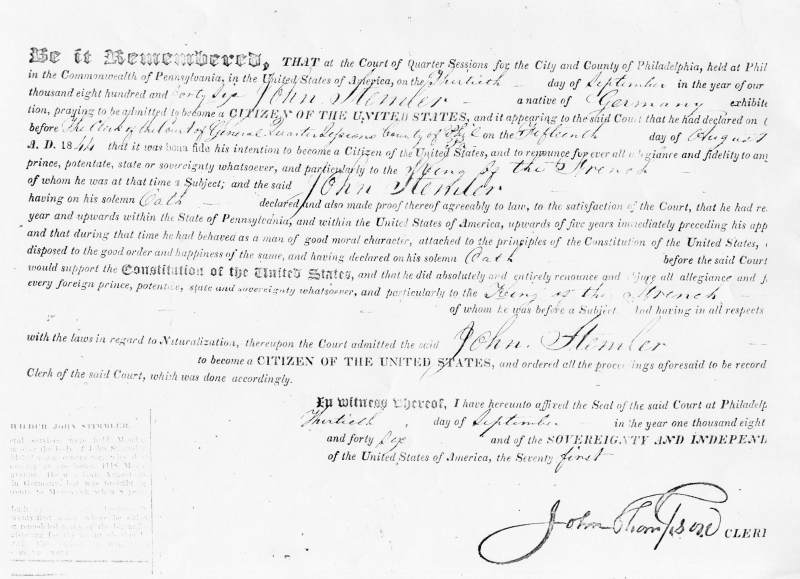 Be it Remembered, THAT at the Court of Quarter Sessions for the City and County of Philadelphia, held at Phil
in the Commonwealth of Pennsylvania, in the United States of America, on the Thirtieth day of September in the year of our
thousand eight hundred and forty six John Stemler a native of Germany exhibite
tion, praying to be admitted to become a CITIZEN OF THE UNITED STATES, and it appearing to the said Court that he had declared on
before The Clerk of the Court of General Quarter Sessions County of Phil on the Fifteenth day of August
A. D. 1844 that it was bona fide his intention to become a Citizen of the United States, and to renounce for ever all allegiance and fidelity to any
prince, potentate, state or sovereignty whatsoever, and particularly to the King of the French
of whom he was at that time a Subject; and the said John Stemler
having on his solemn Oath declared and also made proof thereof agreeably to law, to the satisfaction of the Court, that he had re
year and upwards within the State of Pennsylvania, and within the United States of America, upwards of five years immediately preceding his app
and that during that time he had behaved as a man of good moral character, attached to the principles of the Constitution of the United States,
disposed to the good order and happiness of the same, and having declared on his solemn Oath before the said Court
would support the Constitution of the United States, and that he did absolutely and entirely renounce and abjure all allegiance and f
every foreign prince, potentate, state and sovereignty whatsoever, and particularly to the King of the French
of whom he was before a Subject and having in all respects
with the laws in regard to Naturalization, thereupon the Court admitted the said John Stemler
to become a CITIZEN OF THE UNITED STATES, and ordered all the proceedings aforesaid to be record
Clerk of the said Court, which was done accordingly.
In witness whereof, I have hereunto affixed the Seal of the said Court at Philadelp
Thirtieth day of September in the year one thousand eight
and forty six and of the SOVEREIGNTY AND INDEPENL
of the United States of America, the Seventy first
John Thompson CLERI
JOHN STIMMLER.